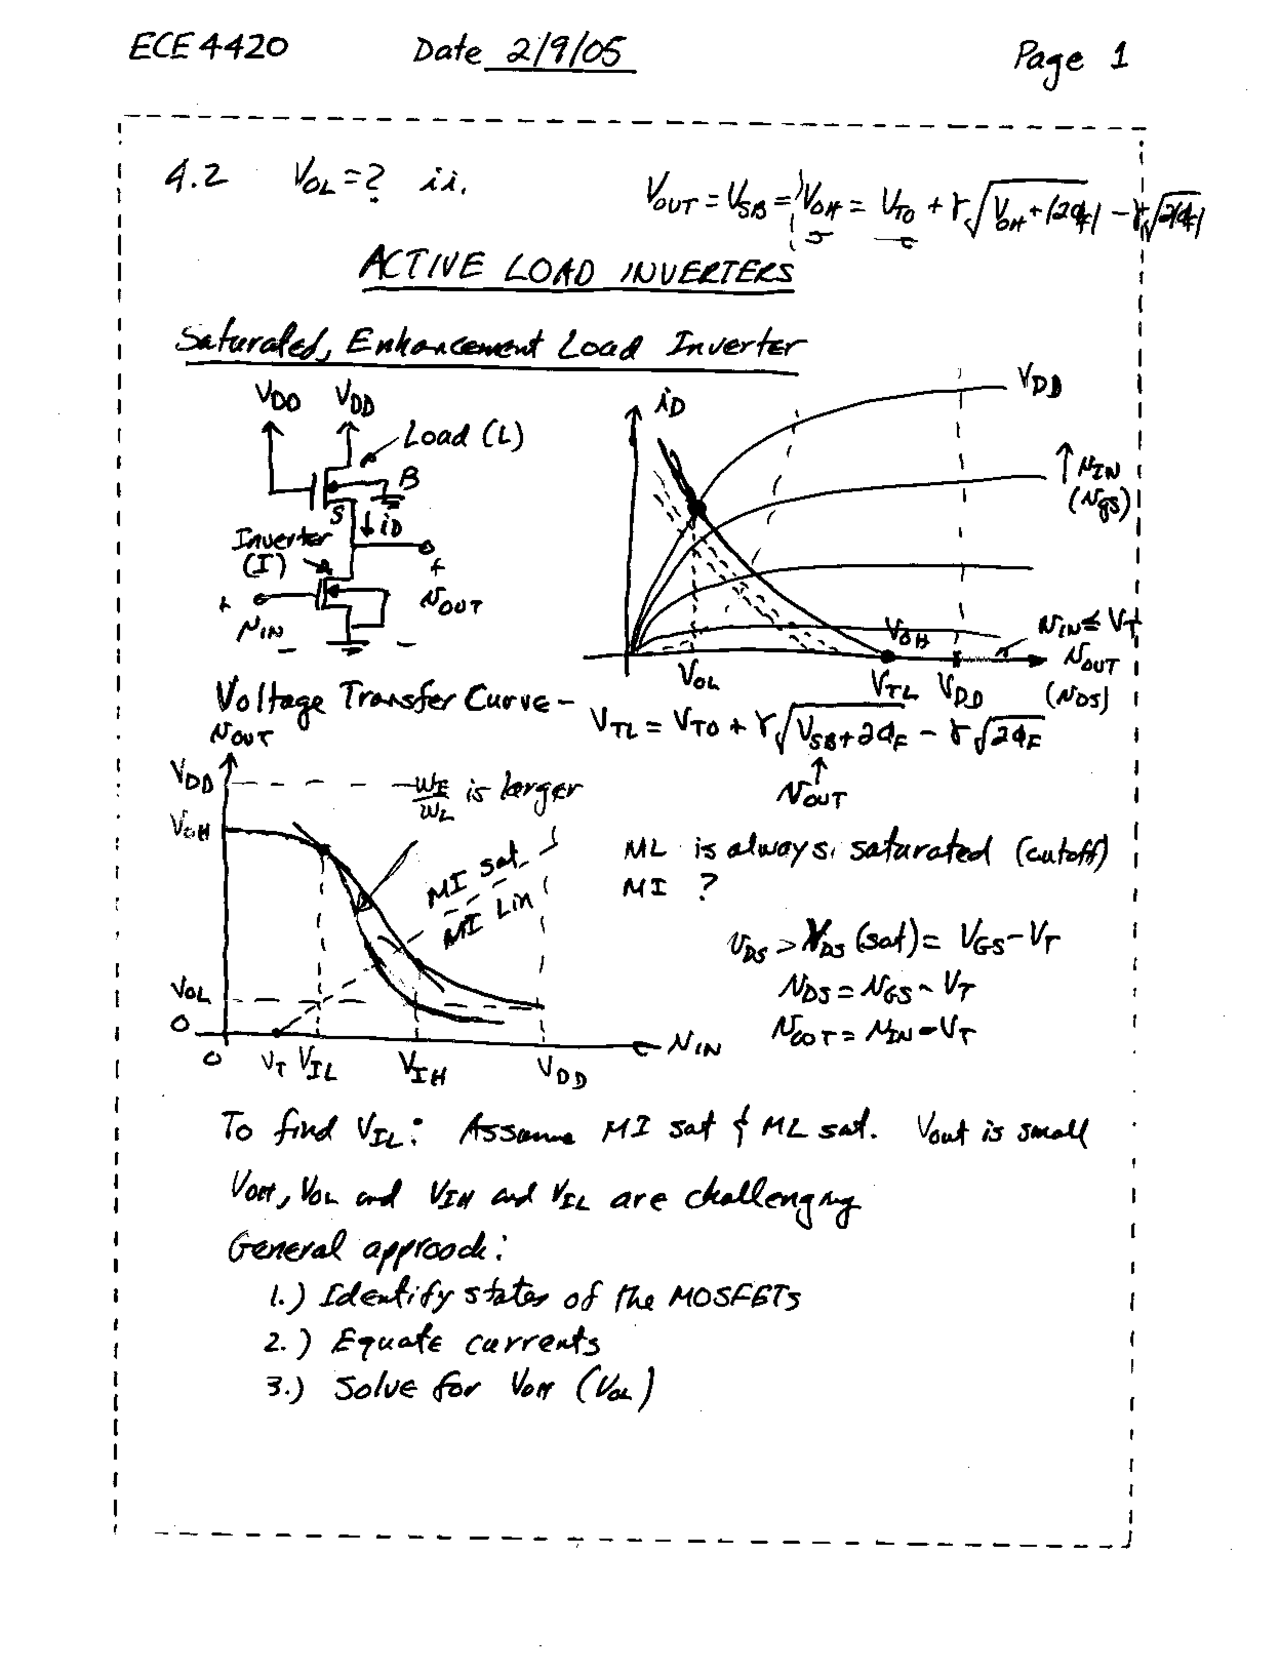 ECE 4420 Date 2/9/05 Page 1
4.2 VOL = ? ii.
VOUT = VSB = VOH = VTO + γ√(VOH + |2φF|) − γ√|2φF|
ACTIVE LOAD INVERTERS
Saturated, Enhancement Load Inverter
VDD VDD
Load (L)
B
S
iD
Inverter
(I)
+
vIN
−
+
vOUT
−
iD
VDD
↑ vIN
(vgs)
vIN ≤ VT
VOH
vOUT
(vDS)
VOL VTL VDD
Voltage Transfer Curve -
VTL = VTO + γ√(VSB + 2φF) − γ√(2φF)
↑
vOUT
vOUT
VDD
VOH
WI/WL is larger
MI sat
MI Lin
VOL
0
0 VT VIL VIH VDD
vIN
ML is always saturated (cutoff)
MI ?
vDS > VDS (sat) = VGS − VT
vDS = vGS − VT
vOUT = vIN − VT
To find VIL: Assume MI sat & ML sat. Vout is small
VOH, VOL and VIH and VIL are challenging
General approach:
1.) Identify states of the MOSFETs
2.) Equate currents
3.) Solve for VOH (VOL)